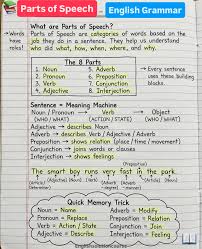 Parts of Speech - English Grammar
What are Parts of Speech?
→ Words have roles!
Parts of Speech are categories of words based on the
job they do in a sentence. They help us understand
who did what, how, when, where, and why.
The 8 Parts
1. Noun 5. Adverb
2. Pronoun 6. Preposition
3. Verb 7. Conjunction
4. Adjective 8. Interjection
→ Every sentence uses these building blocks.
Sentence = Meaning Machine
Noun / Pronoun → Verb → Object
(WHO / WHAT) (ACTION / STATE) (WHO / WHAT)
Adjective → describes Noun
Adverb → describes Verb / Adjective / Adverb
Preposition → shows relation (place / time / movement)
Conjunction → joins words or clauses
Interjection → shows feelings
(Preposition)
The smart boy runs very fast in the park.
(Adjective) (Noun) (Verb) (Adverb)
Quick Memory Trick
Noun = Name Adverb = Modify
Pronoun = Replace Preposition = Relation
Verb = Action / State Conjunction = Join
Adjective = Describe Interjection = Feeling